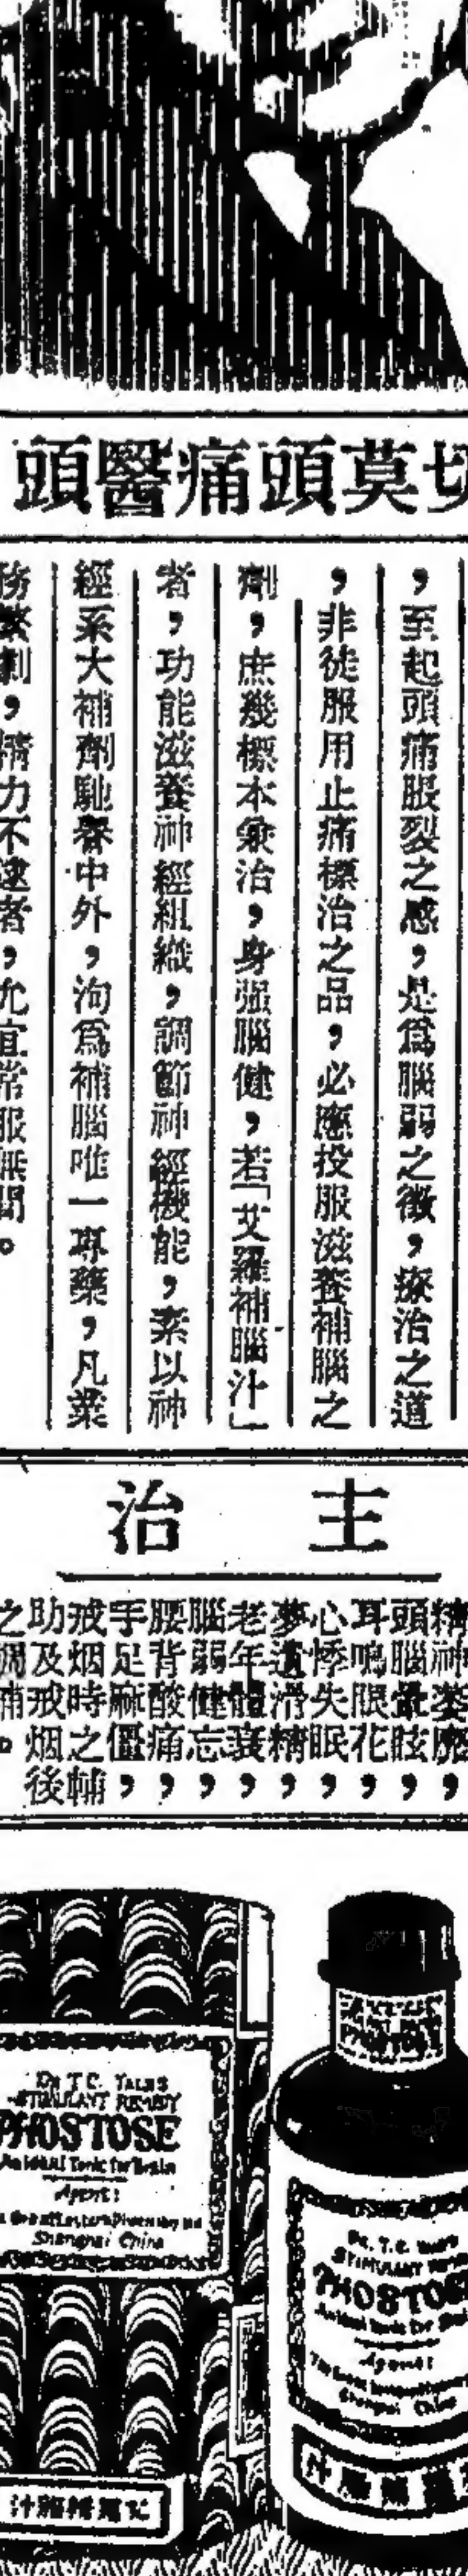 切莫頭痛醫頭
，至起頭痛眼裂之感，是爲腦弱之徵，療治之道
，非徒服用止痛標治之品，必應投服滋養補腦之
劑，庶幾標本兼治，身强腦健，若「艾羅補腦汁」
者，功能滋養神經組織，調節神經機能，素以神
經系大補劑馳譽中外，洵爲補腦唯一專藥，凡業
務繁劇，精力不逮者，尤宜常服無間。
主治
精神萎靡，
頭腦暈眩，
耳鳴眼花，
心悸失眠，
夢遺滑精，
老年體衰，
腦弱健忘，
腰背酸痛，
手足麻僵，
戒烟時之輔
助及戒烟後
之調補。
STIMULANT REMEDY
PHOSTOSE
An Ideal Tonic for Brain
Agent:
Shanghai China
艾羅補腦汁
DR. T.C.
STIMULANT
PHOSTOSE
Agent:
Shanghai China
羅補腦汁